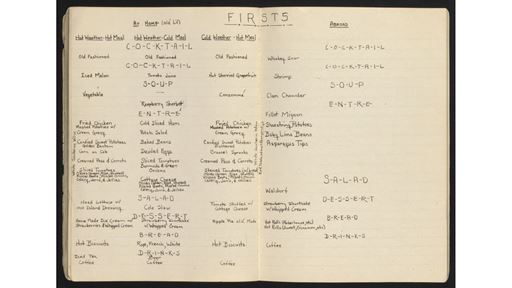 FIRSTS
At Home (old Li')
Abroad
Hot Weather-Hot Meal
Hot Weather-Cold Meal
Cold Weather-Hot Meal
C-O-C-K-T-A-I-L
C-O-C-K-T-A-I-L
Old Fashioned
Old Fashioned
Old Fashioned
Whiskey Sour
C-O-C-K-T-A-I-L
C-O-C-K-T-A-I-L
Iced Melon
Tomato Juice
Hot Sherried Grapefruit
Shrimp
S-O-U-P
S-O-U-P
Vegetable
Consommé
Clam Chowder
Raspberry Sherbet
E-N-T-R-E
E-N-T-R-E
Fillet Mignon
Fried Chicken
Cold Sliced Ham
Fried Chicken
Shoestring Potatoes
Mashed Potatoes w/
Cream Gravy
Potato Salad
Mashed Potatoes w/
Cream Gravy
Baby Lima Beans
Candied Sweet Potatoes
Baked Beans
Candied Sweet Potatoes
Asparagus Tips
Golden Bantam
Corn on Cob
Deviled Eggs
Brussel Sprouts
Creamed Peas & Carrots
Sliced Tomatoes
Creamed Peas & Carrots
Bermuda & Green
Onions
Sliced Tomatoes
Cottage Cheese
Stewed Tomatoes
S-A-L-A-D
S-A-L-A-D
Waldorf
Head Lettuce w/
Cole Slaw
Tomato Stuffed w/
Island Dressing
Cottage Cheese
D-E-S-S-E-R-T
D-E-S-S-E-R-T
Home Made Ice Cream
Strawberry Shortcake
Strawberry Shortcake
Strawberries & Whipped Cream
w/Whipped Cream
w/Whipped Cream
B-R-E-A-D
B-R-E-A-D
Hot Biscuits
Rye, French, White
Hot Biscuits
D-R-I-N-K-S
D-R-I-N-K-S
Iced Tea
Beer
Coffee
Coffee
Coffee
Coffee